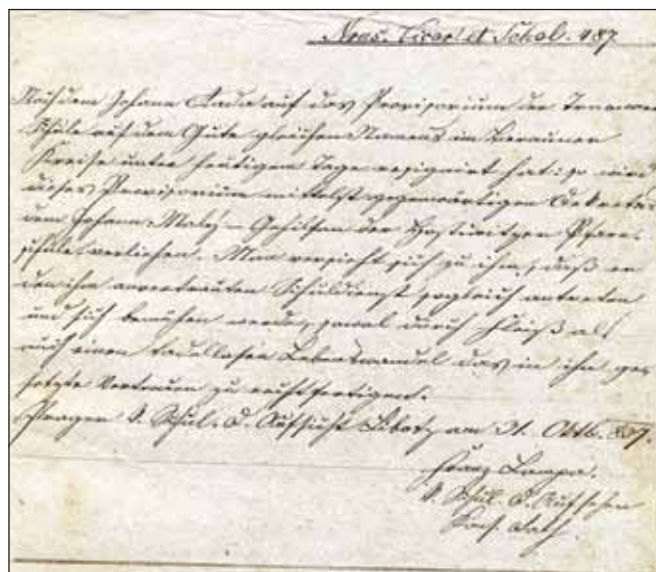 Nrus. Vicar. et Schol. 487.
Nachdem Johann Kada auf das Provisorium der
Schule auf dem Gute gleichen Namens im Berauner
Kreise unter heutigem Tage resignirt hat: so wird
dieses Provisorium mittelst gegenwärtigen Dekretes
dem Johann Malý – Gehilfen der Pfarr-
schule verliehen. Man versieht sich zu ihm, daß er
den ihm anvertrauten Schuldienst sogleich antreten
und sich bemühen werde, sowol durch Fleiß als
auch einen tadellosen Lebenswandel das in ihn ge-
setzte Vertrauen zu rechtfertigen.
Prager V. Schul. D. Aufsicht am 31. Oktb. 837.
Franz
V. Schul. D. Aufseher
Kons. Rath.